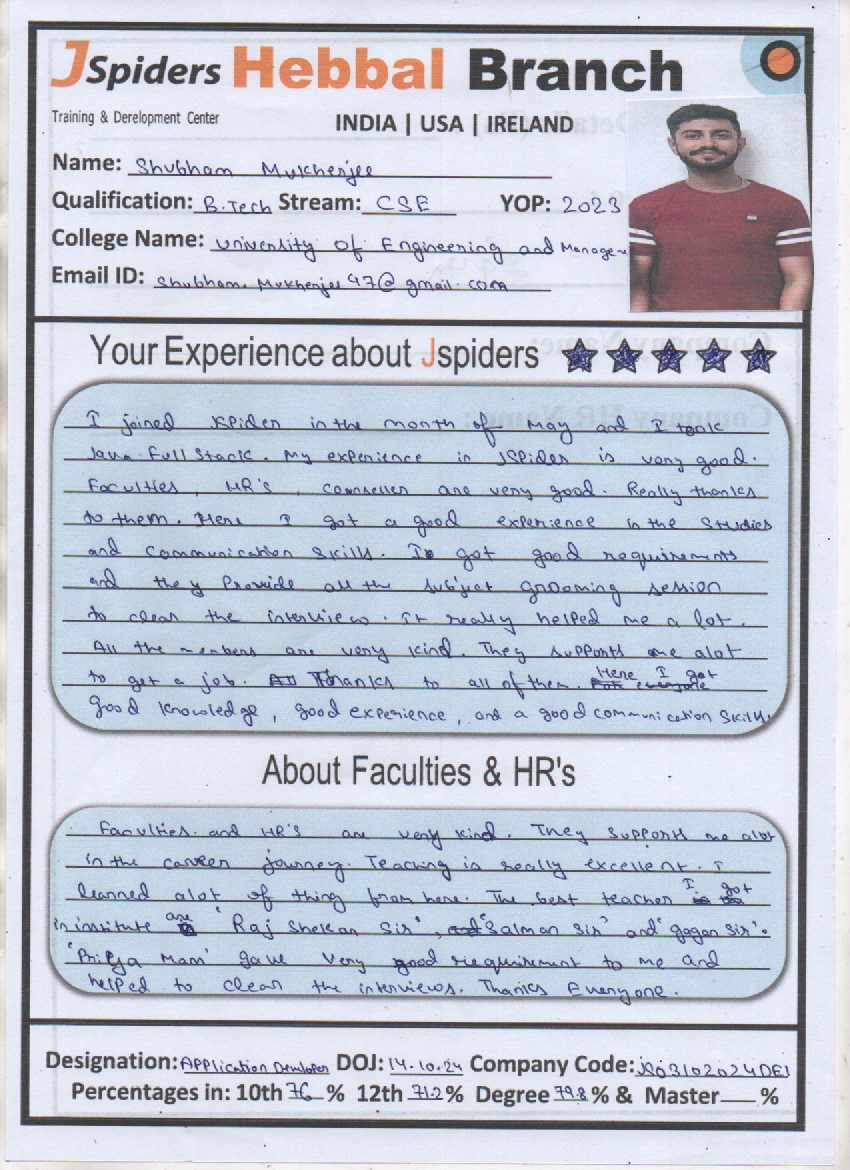 JSpiders Hebbal Branch
Training & Derelopment Center
INDIA | USA | IRELAND
Name: Shubham Mukherjee
Qualification: B.Tech Stream: CSE YOP: 2023
College Name: University of Engineering and Managem
Email ID: Shubham.Mukherjee97@gmail.com
Your Experience about Jspiders
I joined JSpider in the month of May and I took
Java Full Stack. My experience in JSPider is very good.
Faculties, HR's, counseller are very good. Really thanks
to them. Here I got a good experience in the Studies
and Communication Skills. I got good requirements
and they Provide all the subject grooming session
to clear the interview. It really helped me a lot.
All the members are very kind. They supports me alot
to get a job. All Thanks to all of them. Here I got
good knowledge, good experience, and a good communication skills.
About Faculties & HR's
Faculties and HR's are very kind. They supports me alot
in the career journey. Teaching is really excellent. I
learned alot of thing from here. The best teacher I got
in institute are 'Raj Shekar Sir', and 'Salman Sir' and 'gagan Sir'.
'Priya Mam' gave very good requirement to me and
helped to clear the interviews. Thanks Everyone.
Designation: APPlication Developer DOJ: 14.10.24 Company Code:
Percentages in: 10th 76 % 12th 71.2 % Degree 79.8 % & Master %